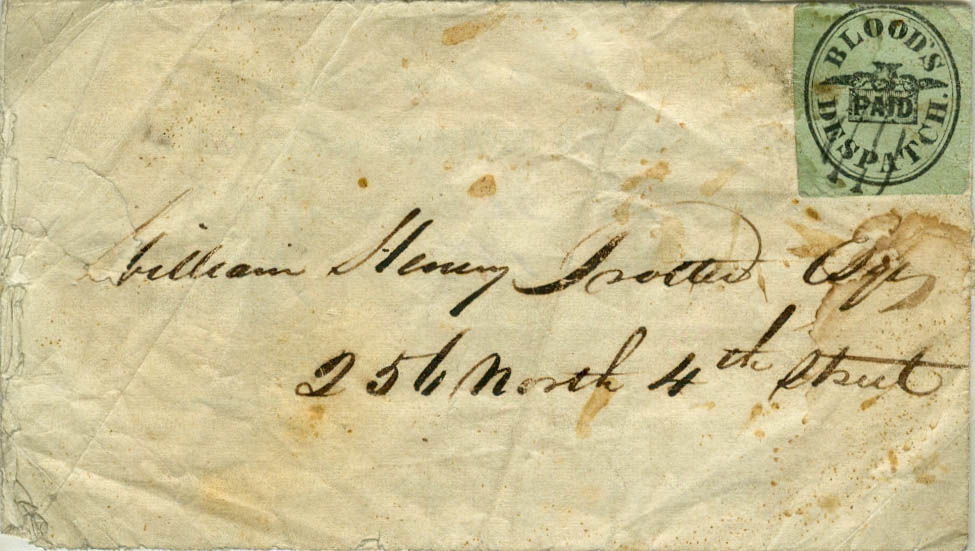 BLOOD'S
PAID
DESPATCH.
William Henry Trotter Esqr
256 North 4th Street